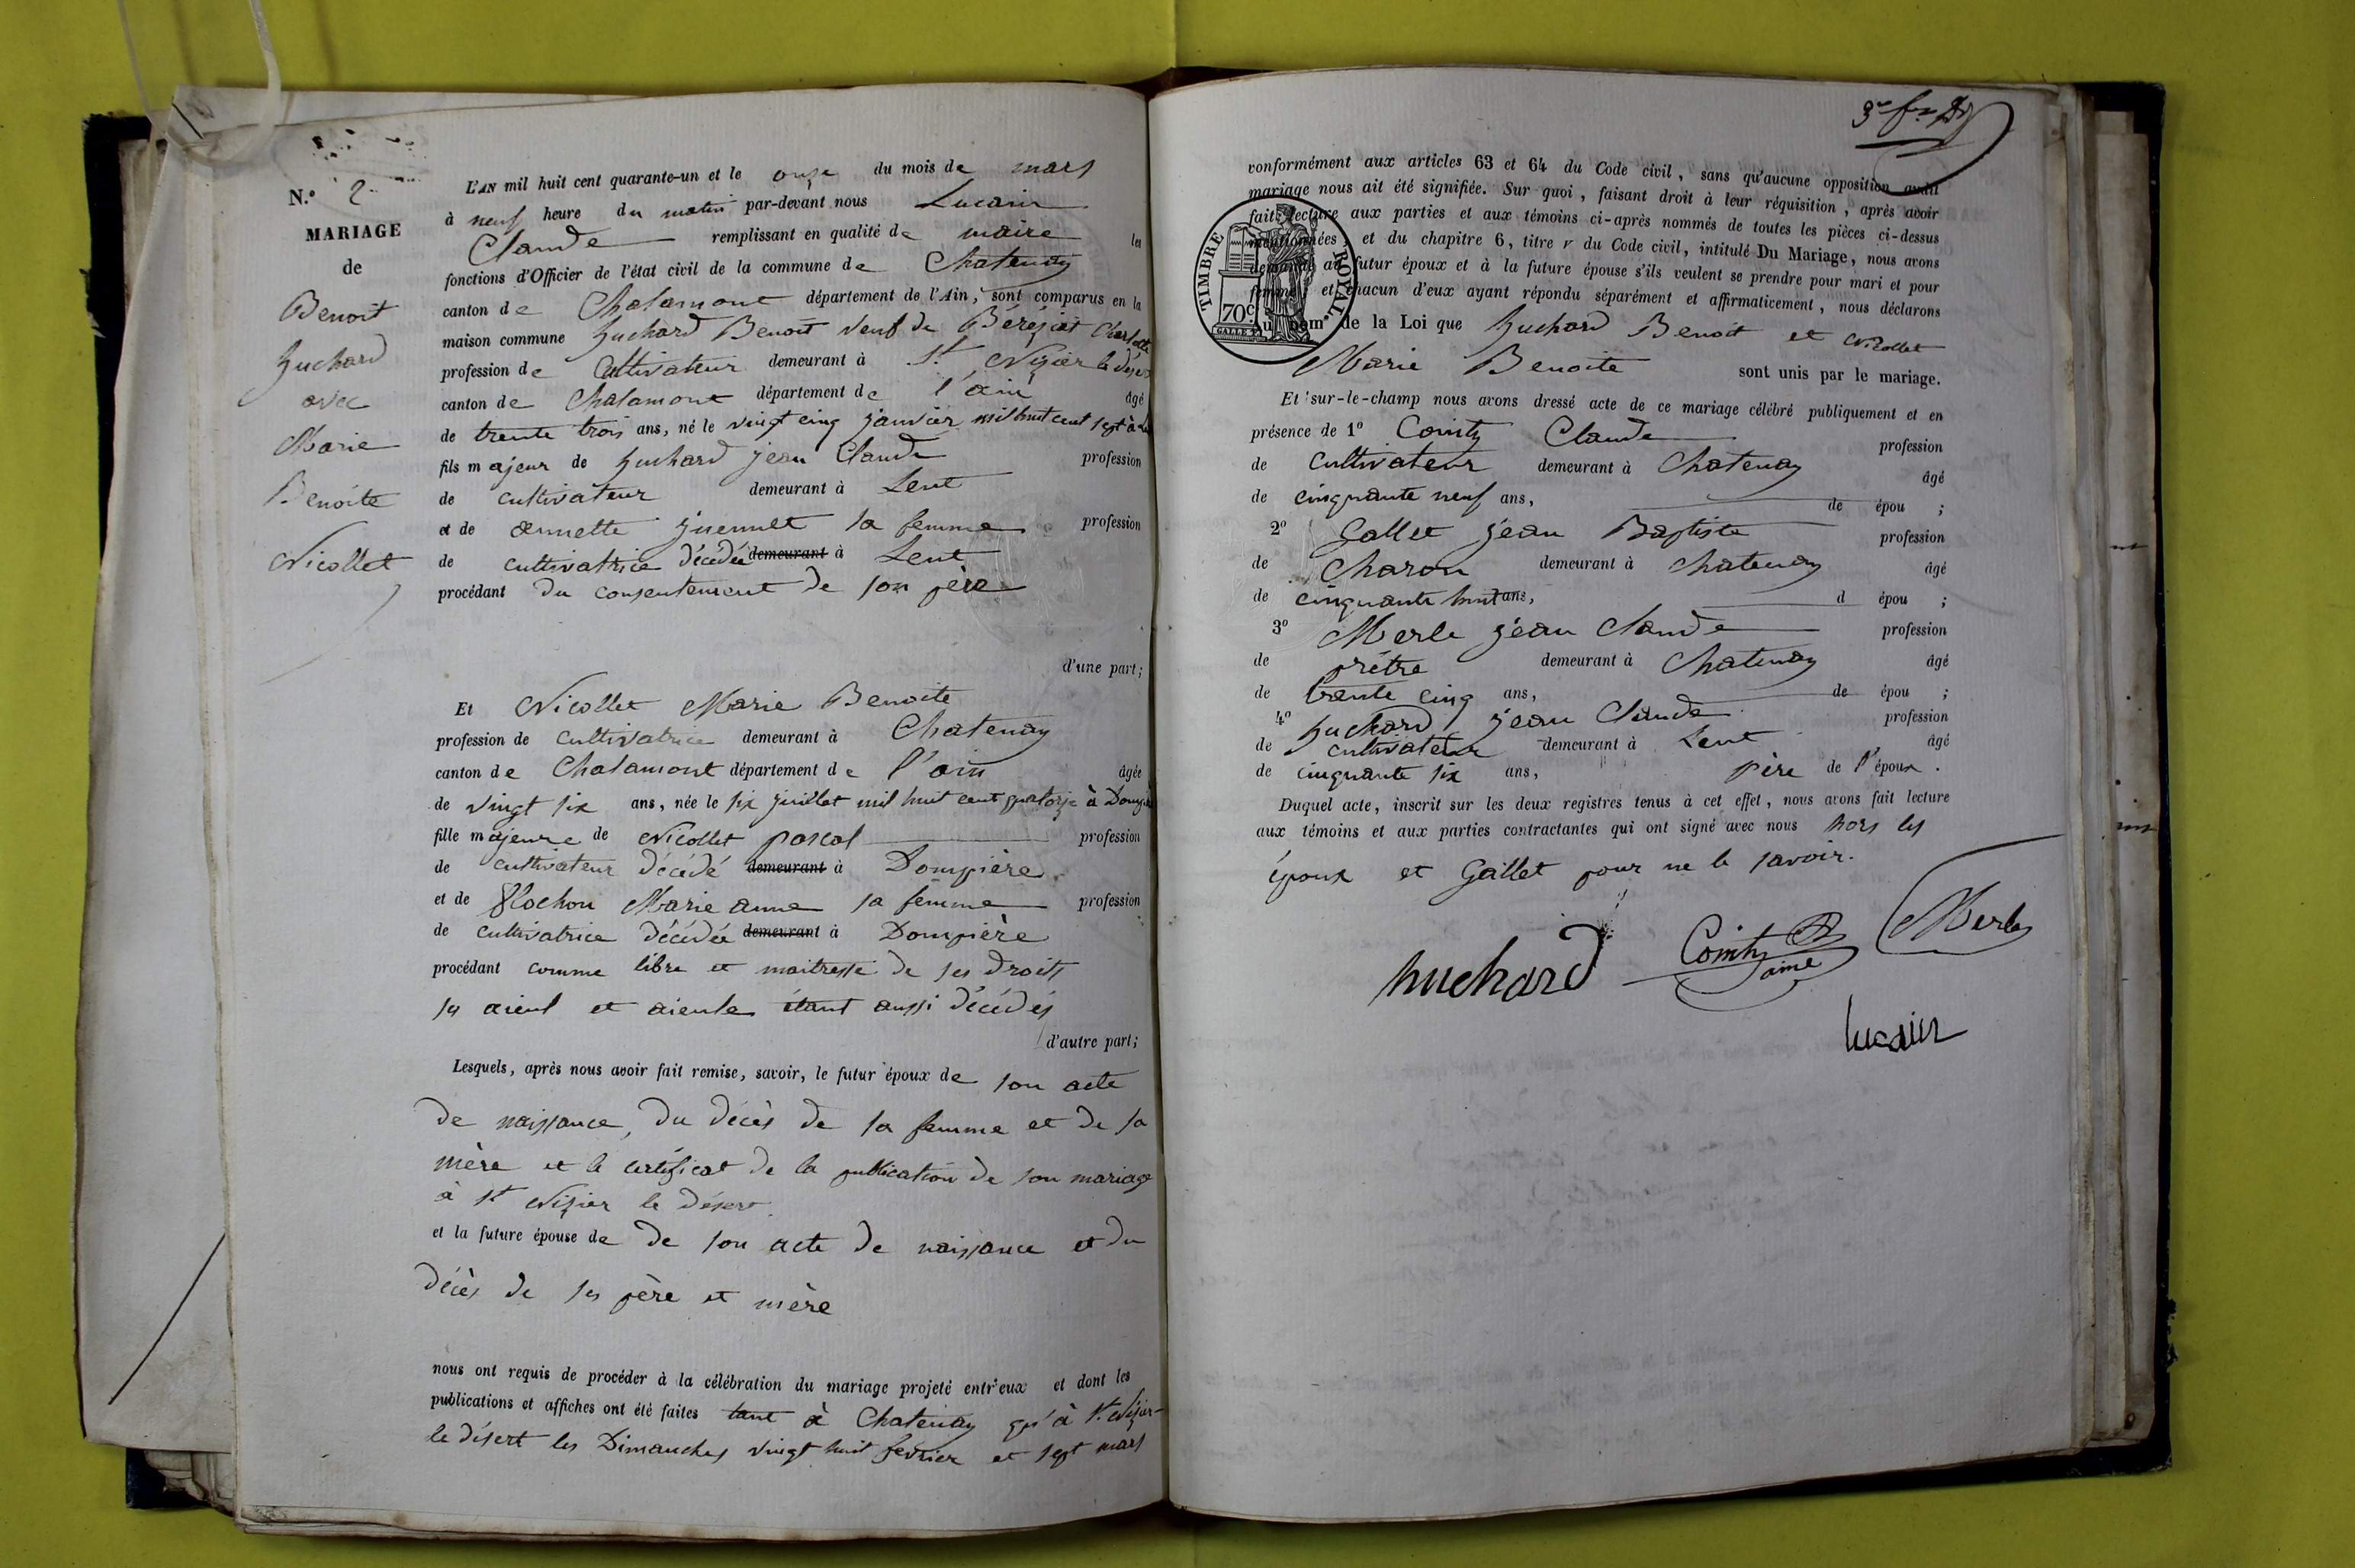 N.° 2
MARIAGE
de
Benoit
huchard
avec
Marie
Benoite
Nicollet
L'AN mil huit cent quarante-un et le onze du mois de mars
à neuf heure du matin par-devant nous Lucain
Claude remplissant en qualité de maire les
fonctions d'Officier de l'état civil de la commune de Chatenay
canton de Chalamont département de l'Ain, sont comparus en la
maison commune huchard Benoit veuf de Béréziat Charlotte
profession de Cultivateur demeurant à St Nizier le désert
canton de Chalamont département de l'ain âgé
de trente trois ans, né le vingt cinq janvier mil huit cent sept à
fils majeur de huchard jean Claude profession
de cultivateur demeurant à Lent
et de annette sa femme profession
de cultivatrice décédée demeurant à Lent
procédant du consentement de son père
d'une part;
Et Nicollet Marie Benoite
profession de cultivatrice demeurant à Chatenay
canton de Chalamont département de l'ain âgée
de vingt six ans, née le six juillet mil huit cent quatorze à
fille majeure de Nicollet pascal profession
de cultivateur décédé demeurant à Dompière
et de Rochon Marie anne sa femme profession
de cultivatrice décédée demeurant à Dompière
procédant comme libre et maitresse de ses droits
ses aieul et aieule étant aussi décédés
d'autre part;
Lesquels, après nous avoir fait remise, savoir, le futur époux de son acte
de naissance, du décès de sa femme et de sa
mère et le certificat de la publication de son mariage
à St Nizier le désert.
et la future épouse de de son acte de naissance et du
décès de ses père et mère
nous ont requis de procéder à la célébration du mariage projeté entr'eux et dont les
publications et affiches ont été faites tant à Chatenay qu'à St. Nizier
le désert les Dimanches vingt huit février et sept mars
conformément aux articles 63 et 64 du Code civil, sans qu'aucune opposition audit
mariage nous ait été signifiée. Sur quoi, faisant droit à leur réquisition, après avoir
fait lecture aux parties et aux témoins ci-après nommés de toutes les pièces ci-dessus
mentionnées, et du chapitre 6, titre v du Code civil, intitulé Du Mariage, nous avons
demandé au futur époux et à la future épouse s'ils veulent se prendre pour mari et pour
femme; et chacun d'eux ayant répondu séparément et affirmaticement, nous déclarons
au nom de la Loi que huchard Benoit et Nicollet
Marie Benoite sont unis par le mariage.
TIMBRE ROYAL
70c
Et sur-le-champ nous avons dressé acte de ce mariage célébré publiquement et en
présence de 1° Cointy Claude profession
de cultivateur demeurant à Chatenay âgé
de cinquante neuf ans, de épou ;
2° Gallet jean Baptiste profession
de Charon demeurant à Chatenay âgé
de cinquante huit ans, d épou ;
3° Merle jean Claude profession
de prêtre demeurant à Chatenay âgé
de trente cinq ans, de épou ;
4° huchard jean Claude profession
de cultivateur demeurant à Lent âgé
de cinquante six ans, père de l'époux .
Duquel acte, inscrit sur les deux registres tenus à cet effet, nous avons fait lecture
aux témoins et aux parties contractantes qui ont signé avec nous hors les
époux et Gallet pour ne le savoir.
huchard Cointy ainé Merle
Lucain